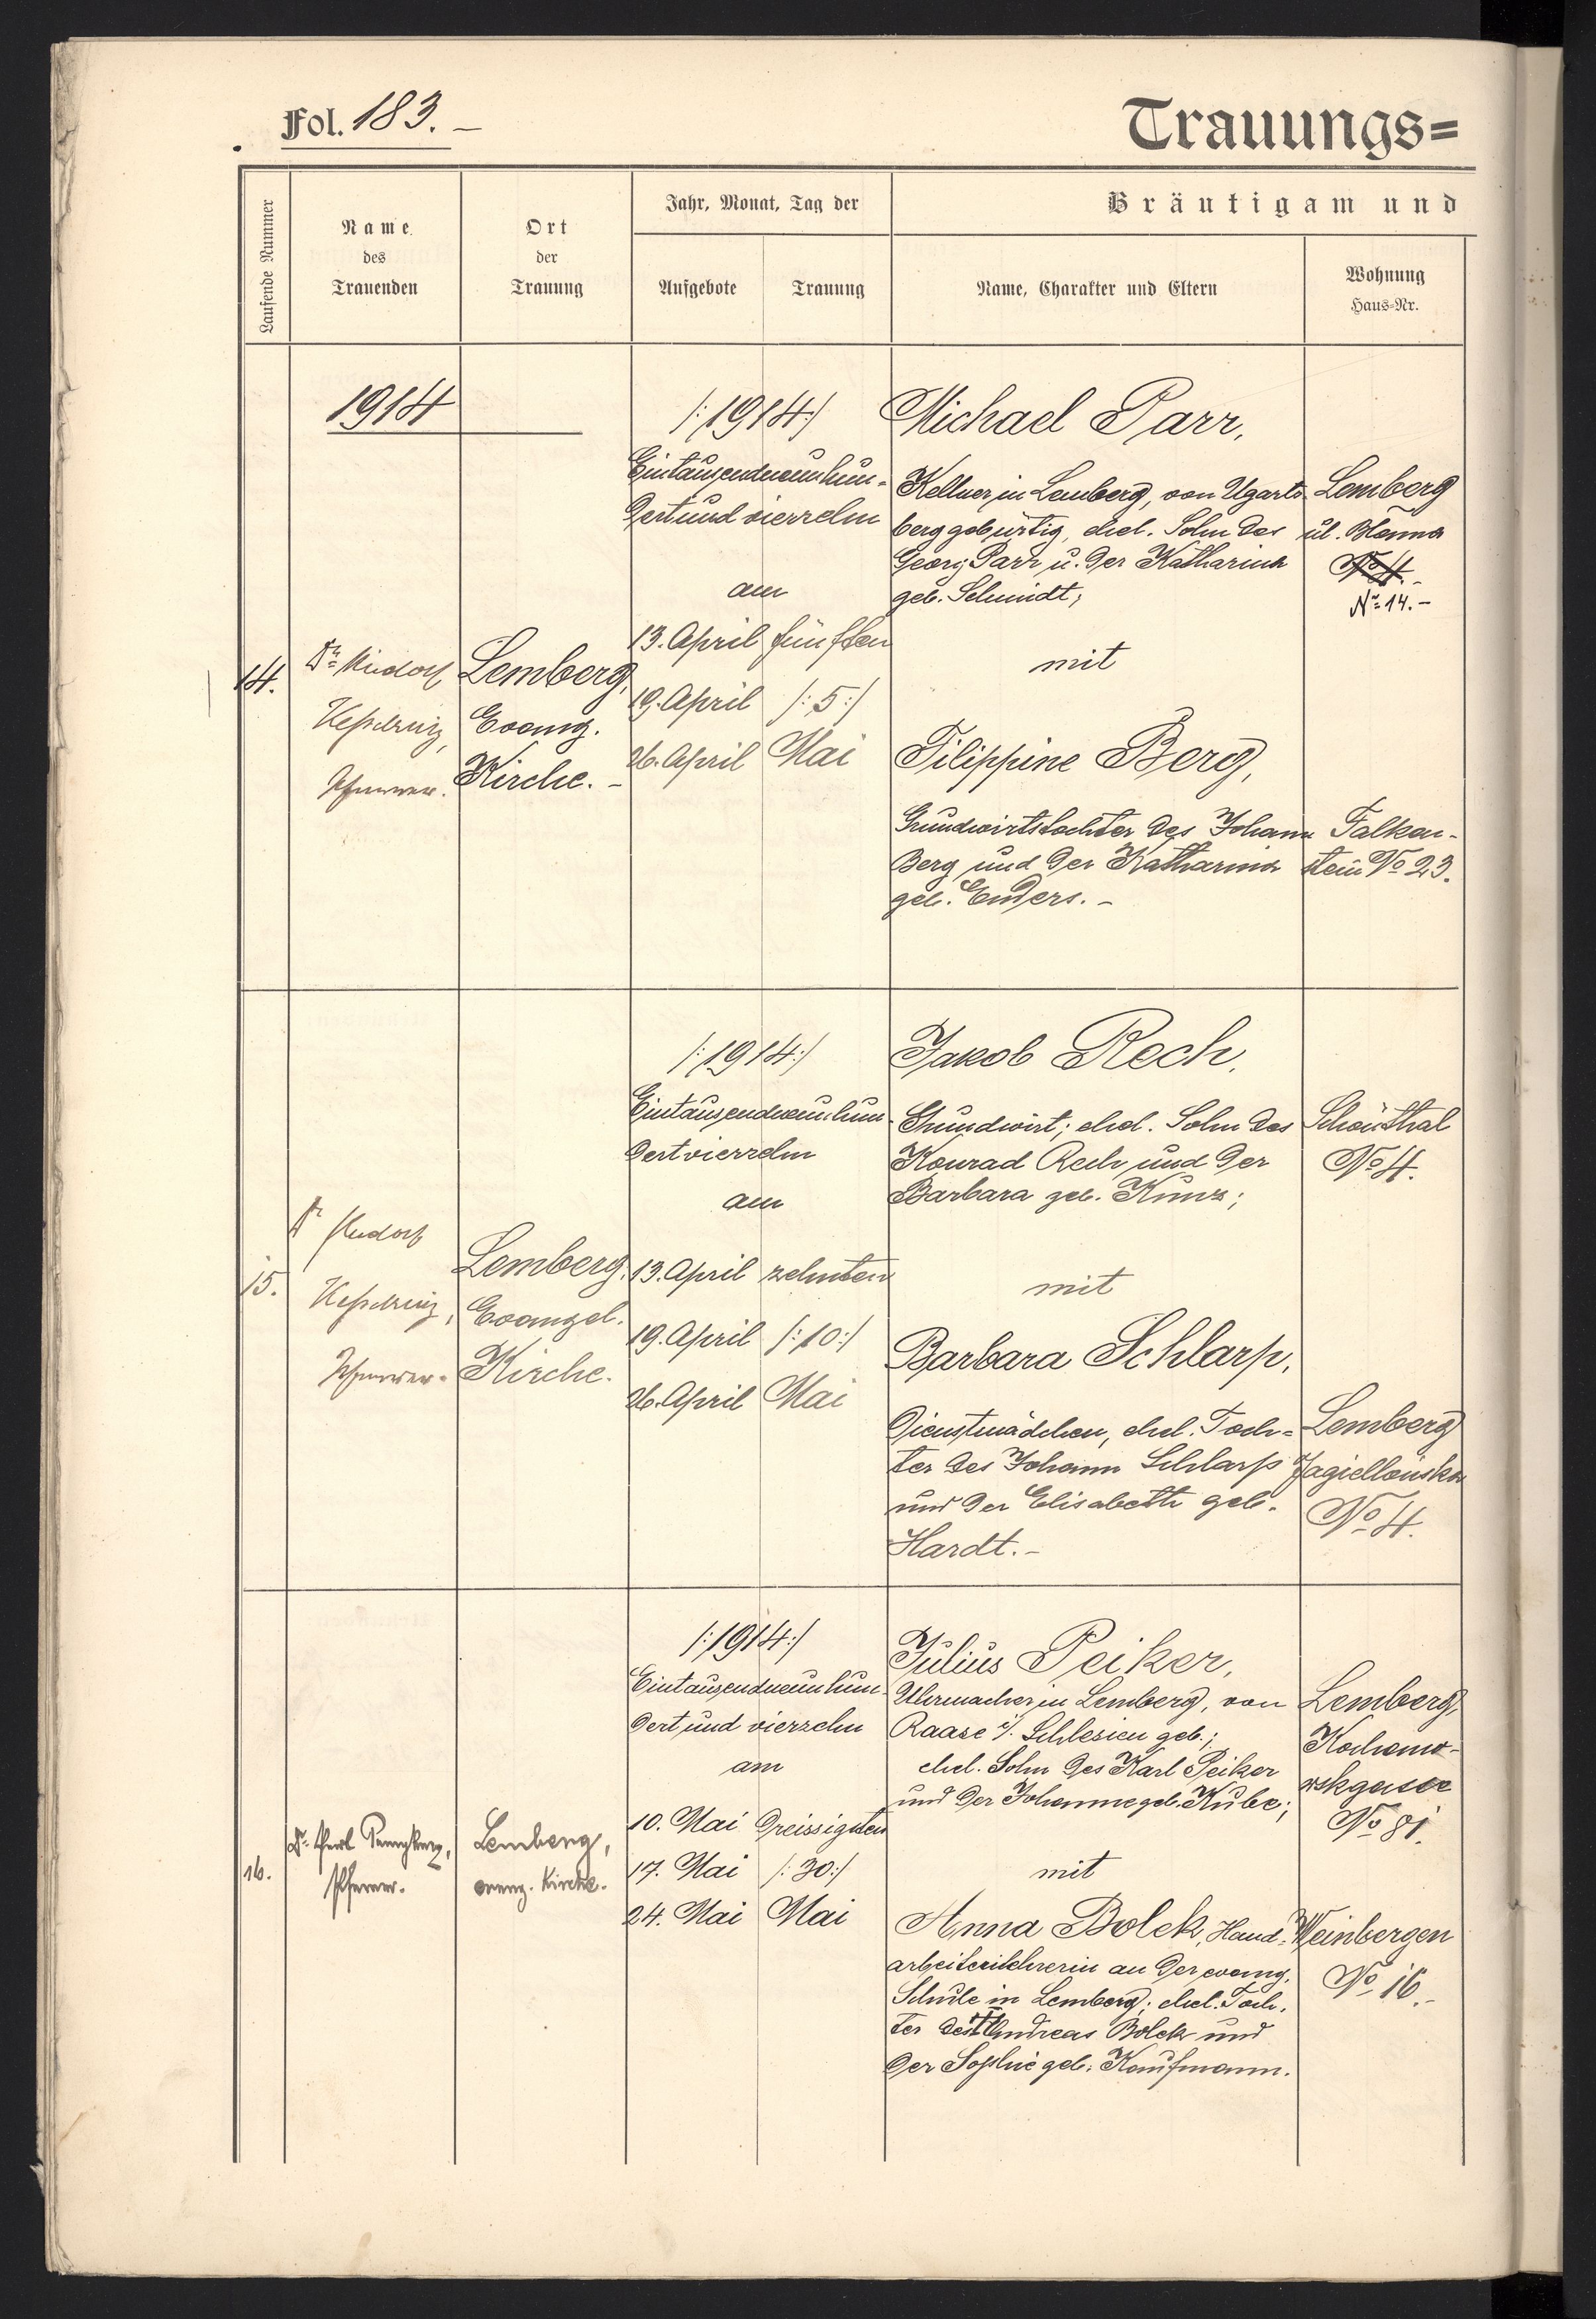 Fol. 183. –
Trauungs=
Laufende Nummer
Name
des
Trauenden
Ort
der
Trauung
Jahr, Monat, Tag der
Aufgebote
Trauung
Bräutigam und
Name, Charakter und Eltern
Wohnung
Haus=Nr.
1914
14.
Dr.
Pfarrer.
Lemberg,
Evang.
Kirche. –
/:1914:/
Eintausendneunhun-
dert und vierzehn
am
13. April fünften
19. April /:5:/
26. April Mai
Michael Parr,
Kellner in Lemberg, von Ugarts-
berg gebürtig, ehel. Sohn des
Georg Parr u. der Katharina
geb. Schmidt;
Lemberg
ul. Błonna
No 4. –
No 14. –
mit
Filippine Berg,
Grundwirtstochter des Johann
Berg und der Katharina
geb. Enders. –
Falken-
stein No 23.
15.
Dr.
Pfarrer.
Lemberg,
Evangel.
Kirche.
/:1914:/
Eintausendneunhun-
dert vierzehn
am
13. April zehnten
19. April /:10:/
26. April Mai
Jakob Rech,
Grundwirt; ehel. Sohn des
Konrad Rech und der
Barbara geb. Kunz;
Schönthal
No 4.
mit
Barbara Schlarp,
Dienstmädchen, ehel. Toch=
ter des Johann Schlarp
und der Elisabeth geb.
Hardt. –
Lemberg
Jagiellońska
No 4.
16.
Dr.
Pfarrer.
Lemberg,
evang. Kirche.
/:1914:/
Eintausendneunhun-
dert und vierzehn
am
10. Mai dreissigsten
17. Mai /:30:/
24. Mai Mai
Julius Peiker,
Uhrmacher in Lemberg, von
Raase i/. Schlesien geb.;
ehel. Sohn des Karl Peiker
und der Johanne geb. Kube;
Lemberg,
Kochano-
wskgasse
No 81.
mit
Anna Bolek, Hand-
arbeiterilehrerin an der evang.
Schule in Lemberg; ehel. Toch-
ter des † Andreas Bolek und
der Sophie geb. Kaufmann.
Weinbergen
No 16. –